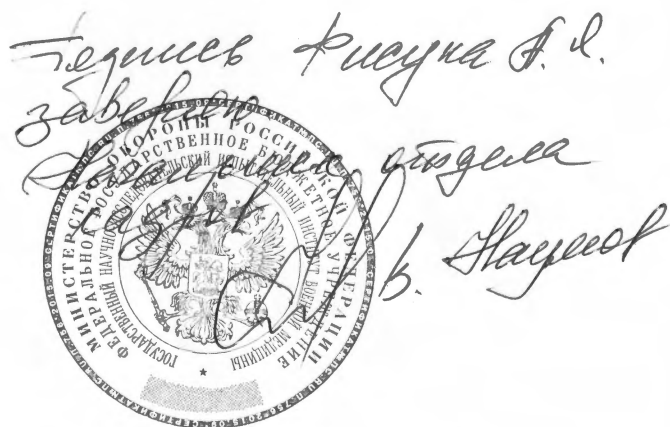 Подпись Фисуна А. Я.
заверяю
Начальник отдела
кадров
В. Наумов
МИНИСТЕРСТВО ОБОРОНЫ РОССИЙСКОЙ ФЕДЕРАЦИИ
ФЕДЕРАЛЬНОЕ ГОСУДАРСТВЕННОЕ БЮДЖЕТНОЕ УЧРЕЖДЕНИЕ
ГОСУДАРСТВЕННЫЙ НАУЧНО-ИССЛЕДОВАТЕЛЬСКИЙ ИСПЫТАТЕЛЬНЫЙ ИНСТИТУТ ВОЕННОЙ МЕДИЦИНЫ